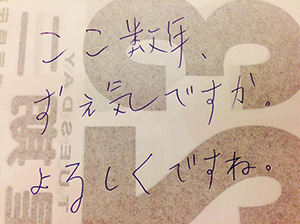 ここ数年、
ず元気ですか。
よるしくですね。
TUESDAY